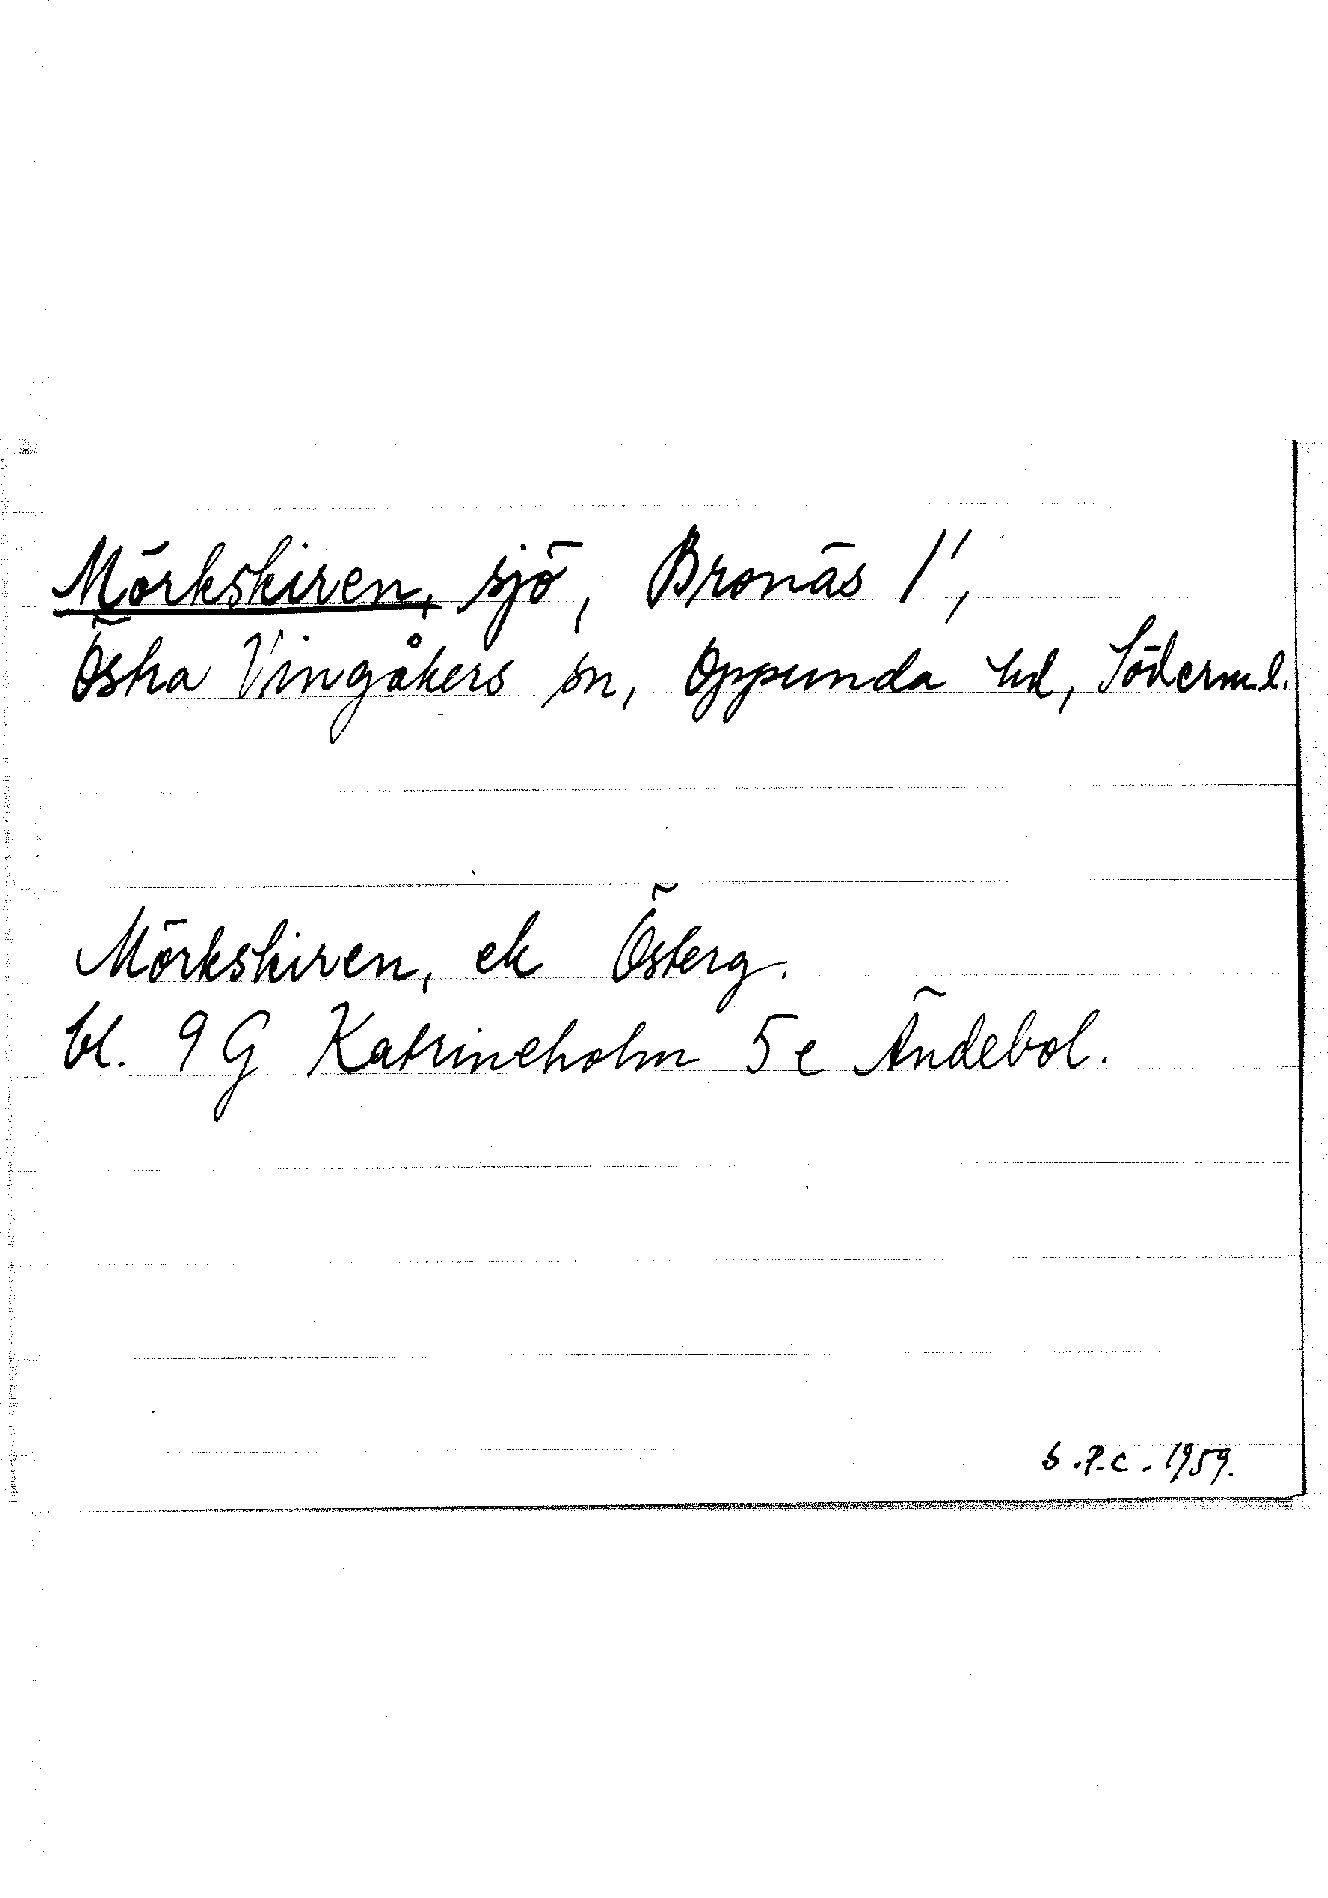 Mörkskiren, sjö, Bronäs 1¹,
Östra Vingåkers sn, Oppunda hd, Söderml.
Mörkskiren, ek Österg.
bl. 9G Katrineholm 5e Ändebol.
S.P.C. 1959.